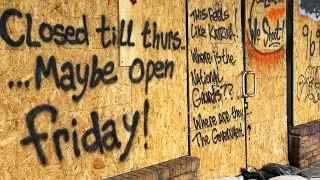 Closed till thurs..
...Maybe open
friday!
This Feels
Like Katrina
Where is the
National
Guards??
Where are they
The Government
We Shoot!